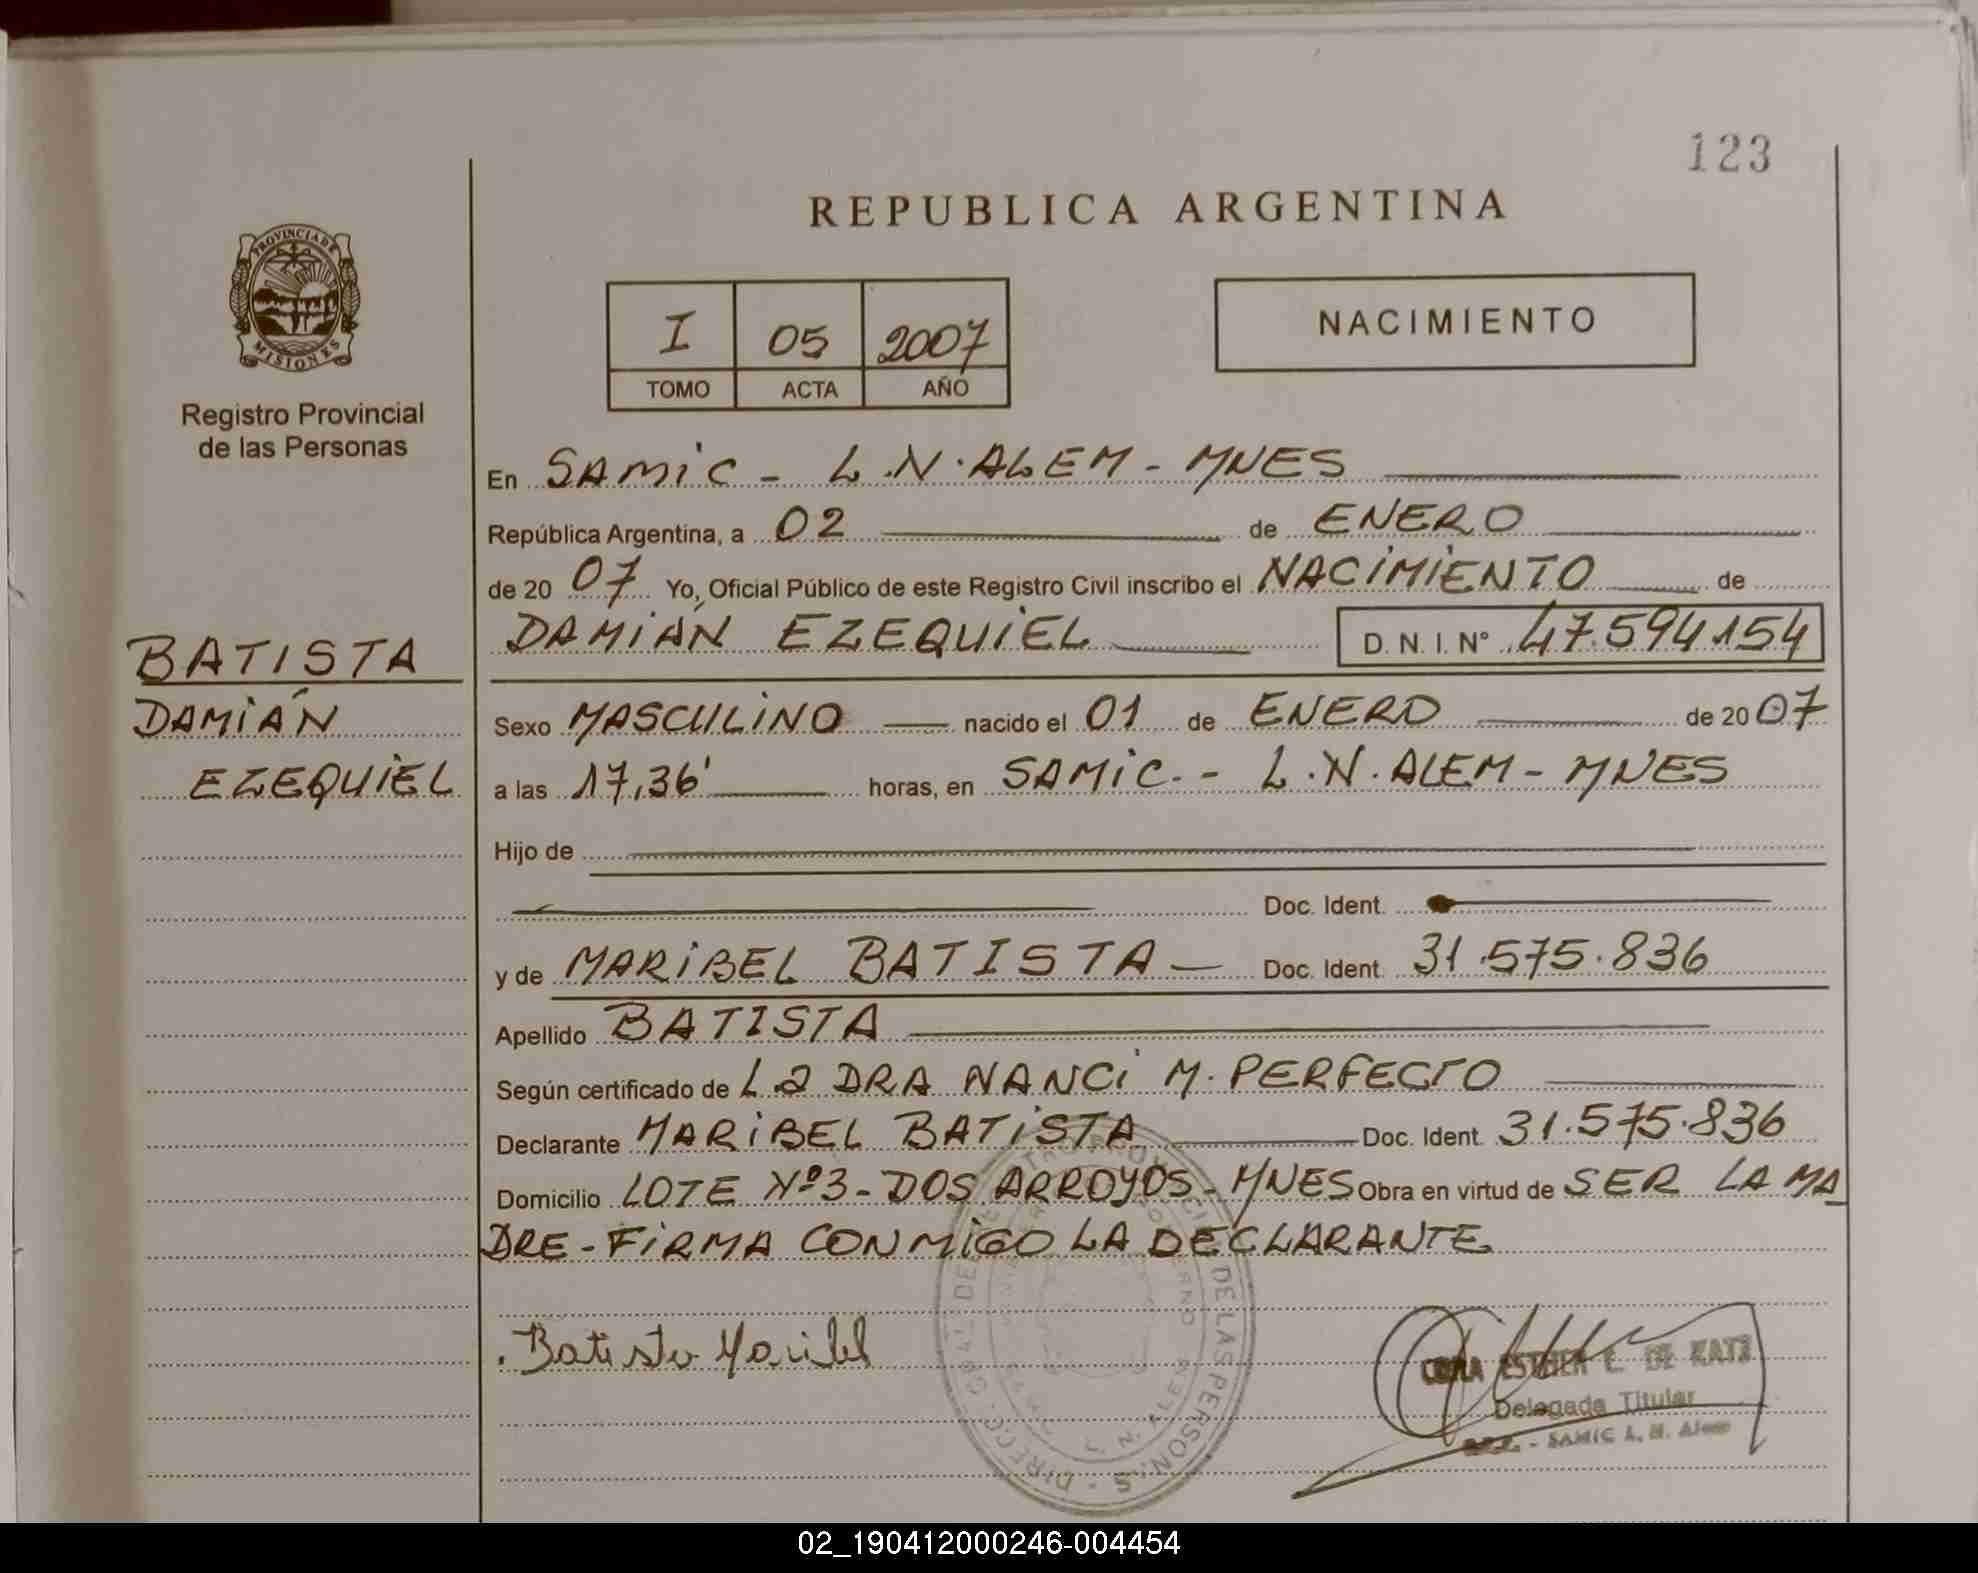 123
REPUBLICA ARGENTINA
PROVINCIA DE
MISIONES
Registro Provincial
de las Personas
I 05 2007
TOMO ACTA AÑO
NACIMIENTO
En SAMIC - L.N.ALEM - MNES
República Argentina, a 02 de ENERO
de 20 07 Yo, Oficial Público de este Registro Civil inscribo el NACIMIENTO de
DAMIÁN EZEQUIEL D.N.I. N° 47.594.154
BATISTA
DAMIÁN
EZEQUIEL
Sexo MASCULINO nacido el 01 de ENERO de 20 07
a las 17,36' horas, en SAMIC.- - L.N.ALEM - MNES
Hijo de
Doc. Ident.
y de MARIBEL BATISTA — Doc. Ident. 31.575.836
Apellido BATISTA
Según certificado de La DRA NANCI M. PERFECTO
Declarante MARIBEL BATISTA Doc. Ident. 31.575.836
Domicilio LOTE Nº3 - DOS ARROYOS - MNES Obra en virtud de SER LA MA
DRE - FIRMA CONMIGO LA DECLARANTE
Batista Maribel
ESTHER C. DE KATZ
Delegada Titular
SAMIC L. N. Alem
02_190412000246-004454